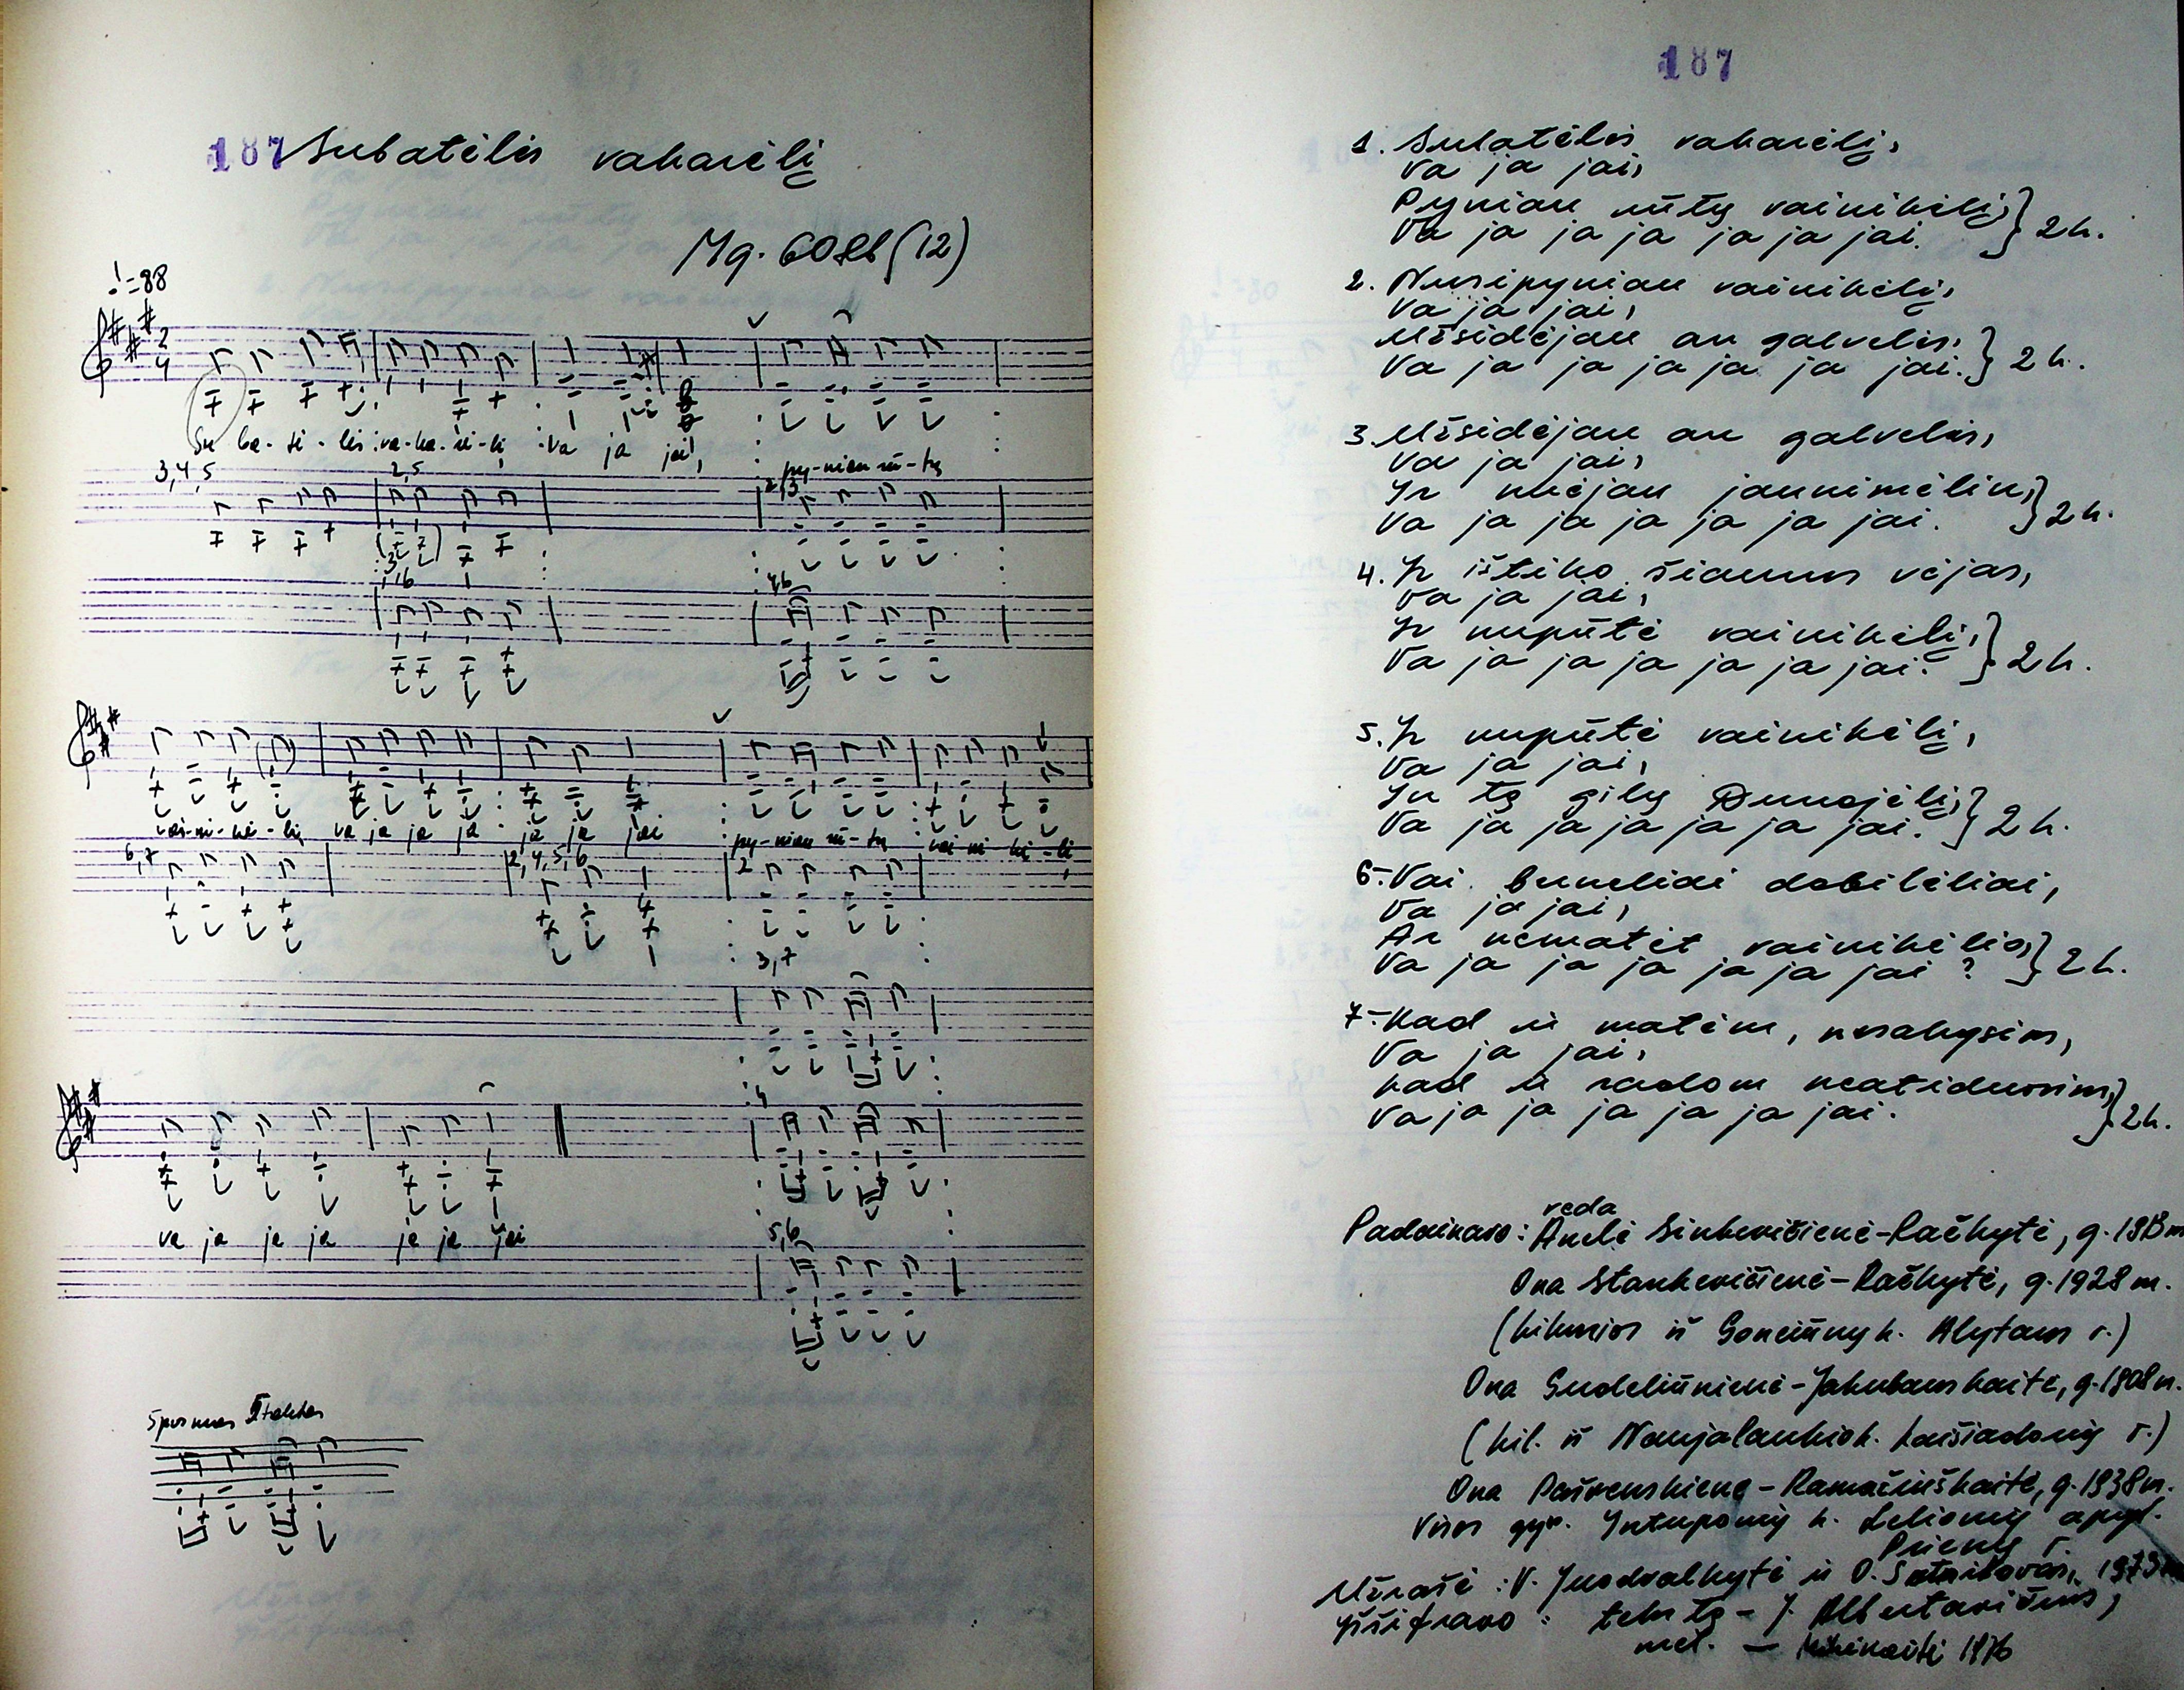 187 Subatėlis vakarėlį
Mg. 6088 (12)
♩=88
2
4
Su ba-tė-lis va-ka-rė-lį, va ja jai,
py-niau rū-tų
3,4,5
2,5
2,3
vai-ni-kė-lį va ja ja ja ja ja jai
py-niau rū-tų vai-ni-kė-lį,
6,7
2,4,5,6
2
3,7
4
va ja ja ja ja ja jai
5,6
187
1. Subatėlis vakarėlį,
Va ja jai,
Pyniau rūtų vainikėlį,
Va ja ja ja ja ja jai. } 2 k.
2. Nusipyniau vainikėlį,
Va ja jai,
Užsidėjau an galvelės,
Va ja ja ja ja ja jai. } 2 k.
3. Užsidėjau an galvelės,
Va ja jai,
Ir nuėjau jaunimėlin,
Va ja ja ja ja ja jai. } 2 k.
4. Ir ištiko šiaurus vėjas,
Va ja jai,
Ir nupūtė vainikėlį,
Va ja ja ja ja ja jai. } 2 k.
5. Ir nupūtė vainikėlį,
Va ja jai,
In tą gilų Dunojėlį,
Va ja ja ja ja ja jai. } 2 k.
6. Vai berneliai dobilėliai,
Va ja jai,
Ar nematėt vainikėlio,
Va ja ja ja ja ja jai? } 2 k.
7. Kad ir matėm, nesakysim,
Va ja jai,
Kad ir radom neatiduosim,
Va ja ja ja ja ja jai. } 2 k.
veda
Padainavo: Anelė Sinkevičienė-Račkytė,
Ona Stankevičienė-Račkytė, g. 1928 m.
(kilusios iš k. Alytaus r.)
Ona g. 1908 m.
(kil. iš k. Kaišiadorių r.)
Ona g. 1938 m.
Visos gyv. Intuponių k. Leliomų apyl.
Prienų r.
Užrašė: V. Juodvalkytė ir O.
Iššifravo: tekstą – J. Albertavičius,
mel. – 1976